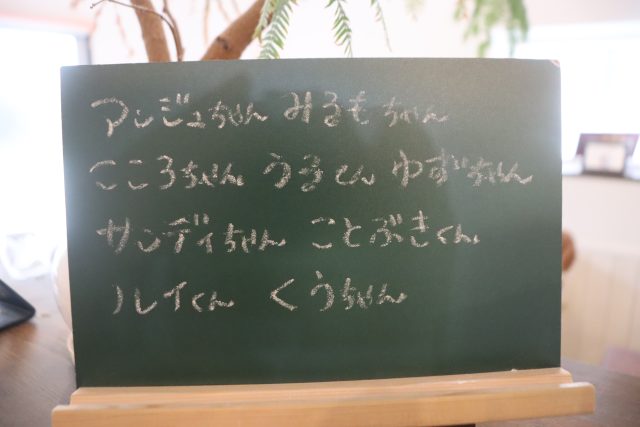 アンジュちゃん みるもちゃん
こころちゃん うるくん ゆずちゃん
サンディちゃん ことぶきくん
ルイくん くうちゃん